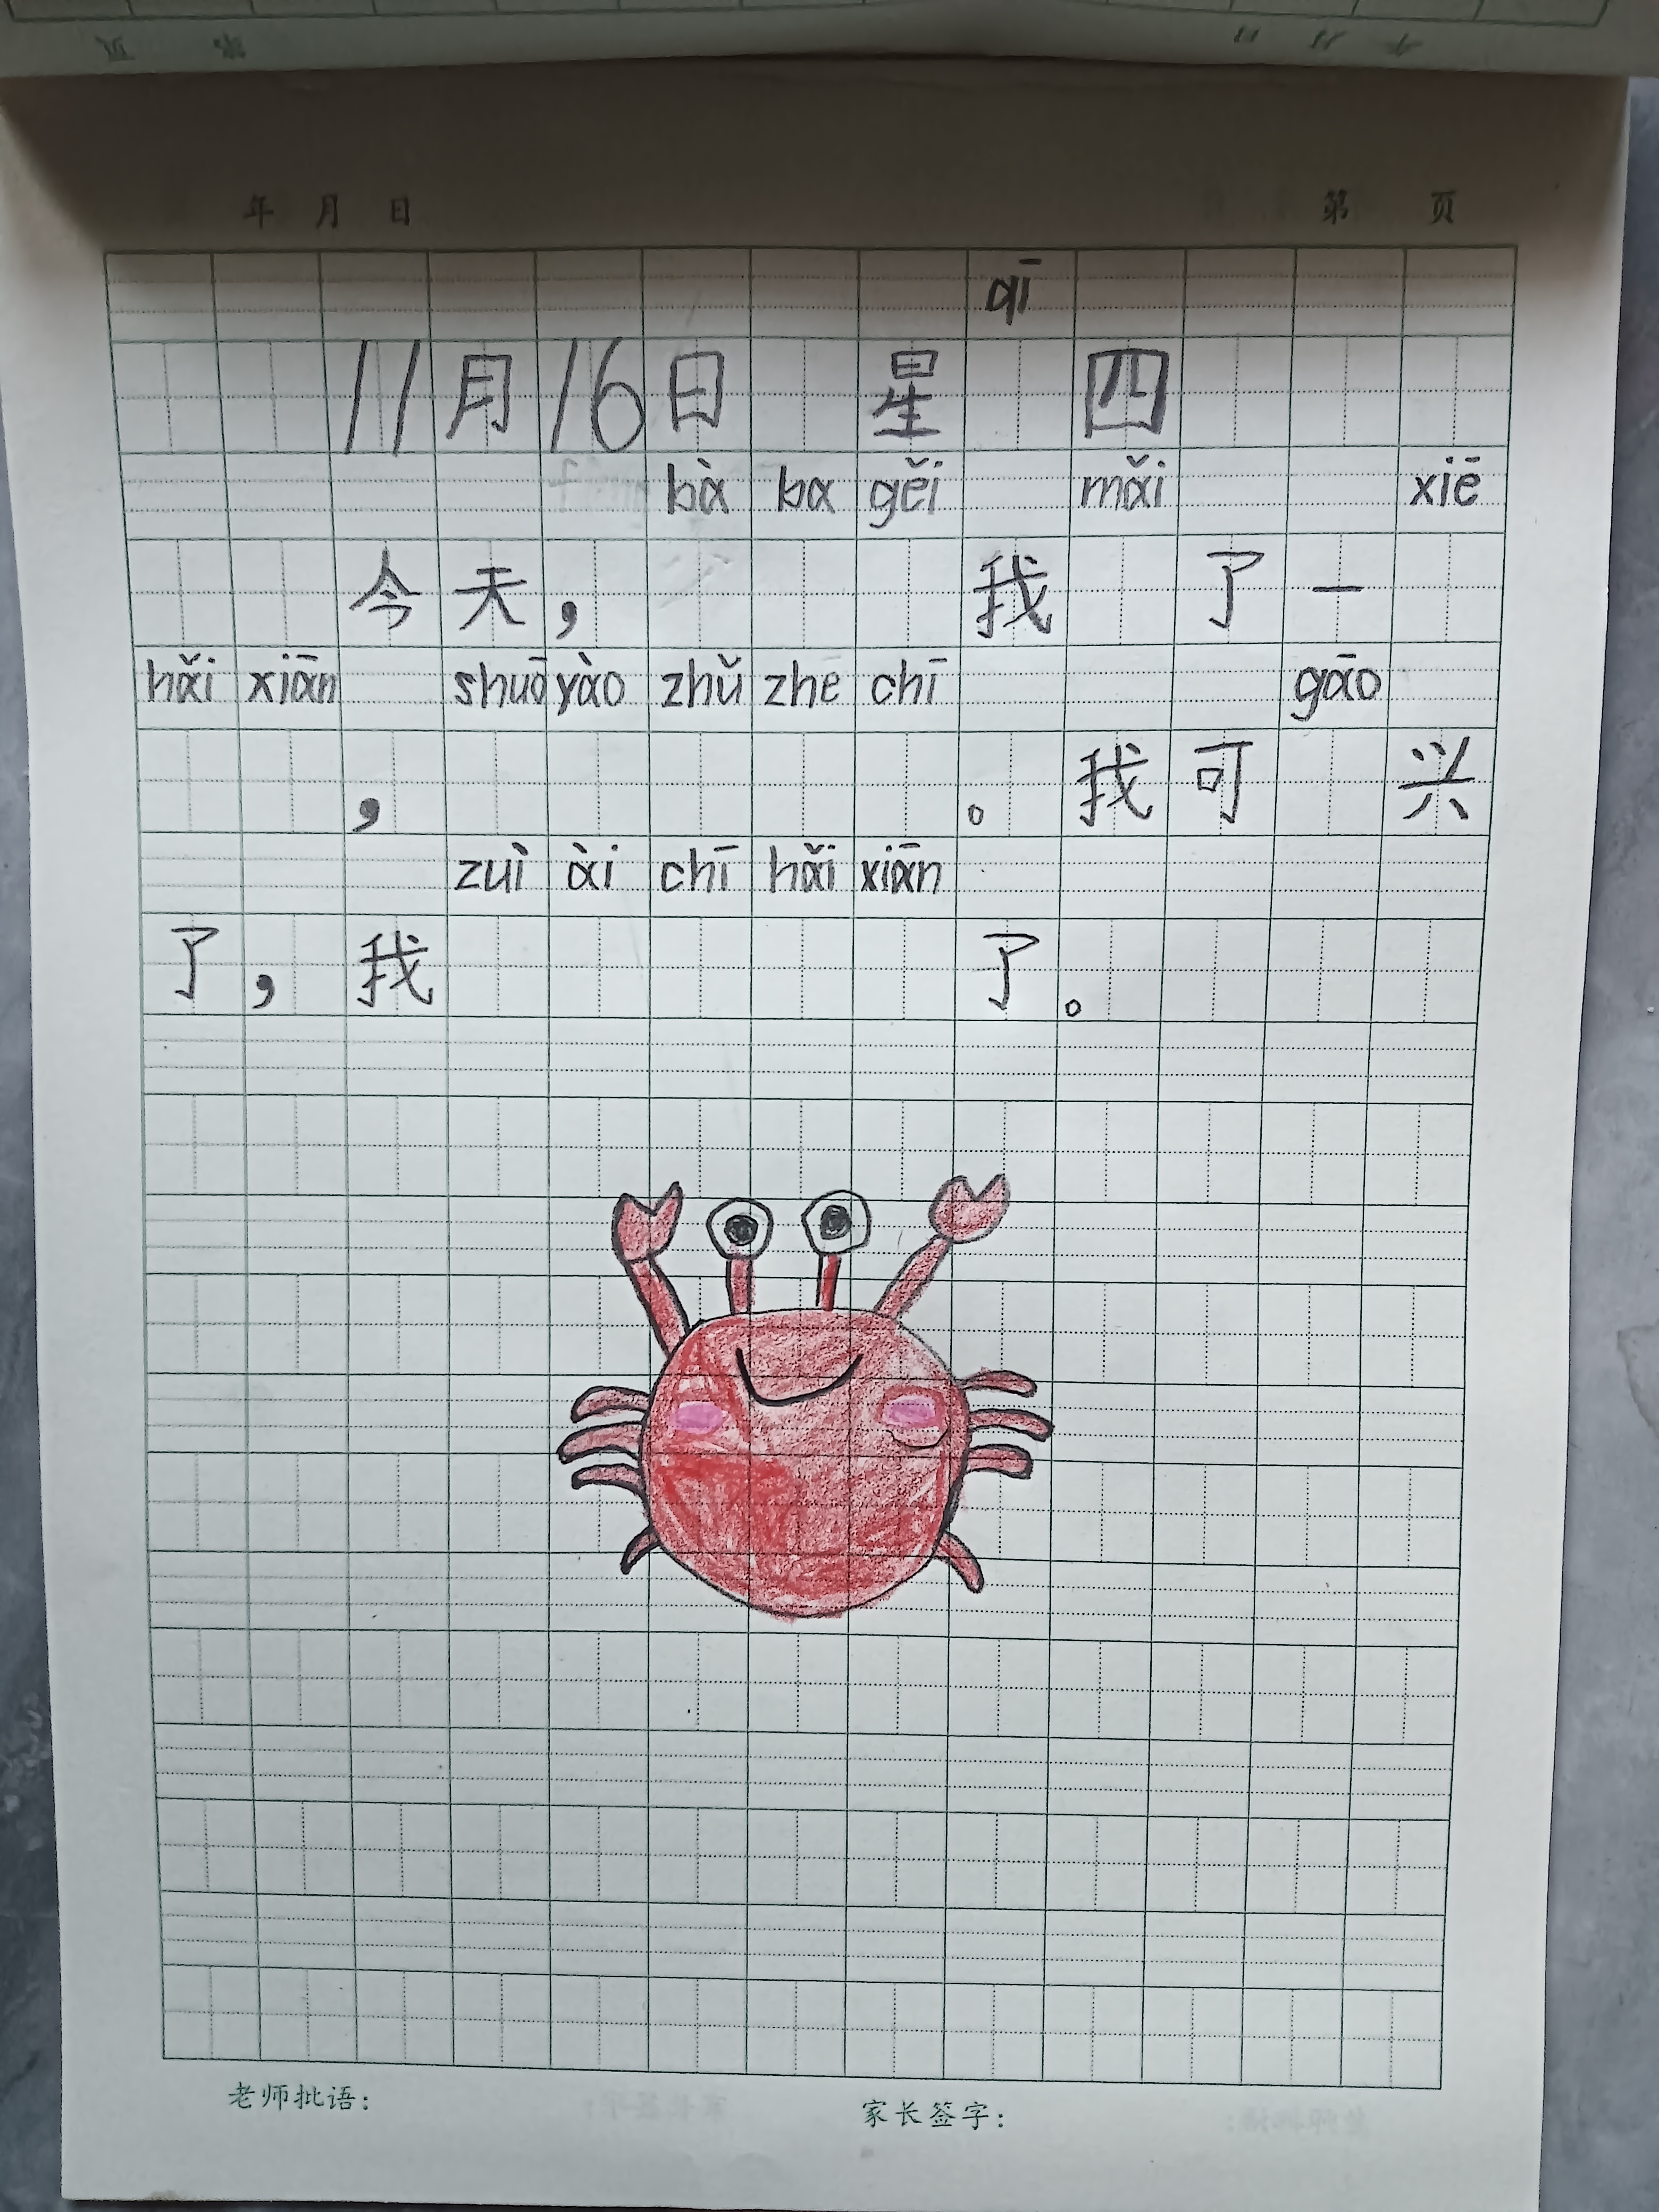 年 月 日 第 页
qī
11月16日 星 四
bà ba gěi mǎi xiē
今天, 我 了一
hǎi xiān shuō yào zhǔ zhe chī gāo
, 。我可 兴
zuì ài chī hǎi xiān
了,我 了。
老师批语: 家长签字: